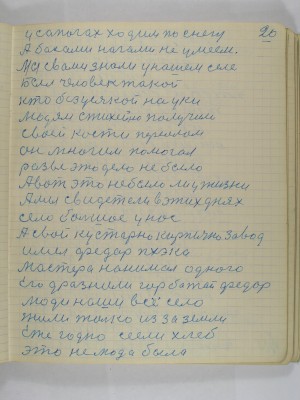 20
у сапогах ходим по снегу
А босами нагами не умеем.
Мы свами знали унашем селе
Был человек такой
кто без усякой науки
людям стихийно получши
своей кости перелом
он многим помогал
разве это дело не было
Авот это небыло ли у жизни
Ами свидетели в этих днях
село большое у нос
А свой кустарно кирпично Завод
имел федар
мастера нанимал одного
Его дразнили горбатай федар
люди наши всё село
жили толко из за земли
Еже годно сеели хлеб
это не мода была